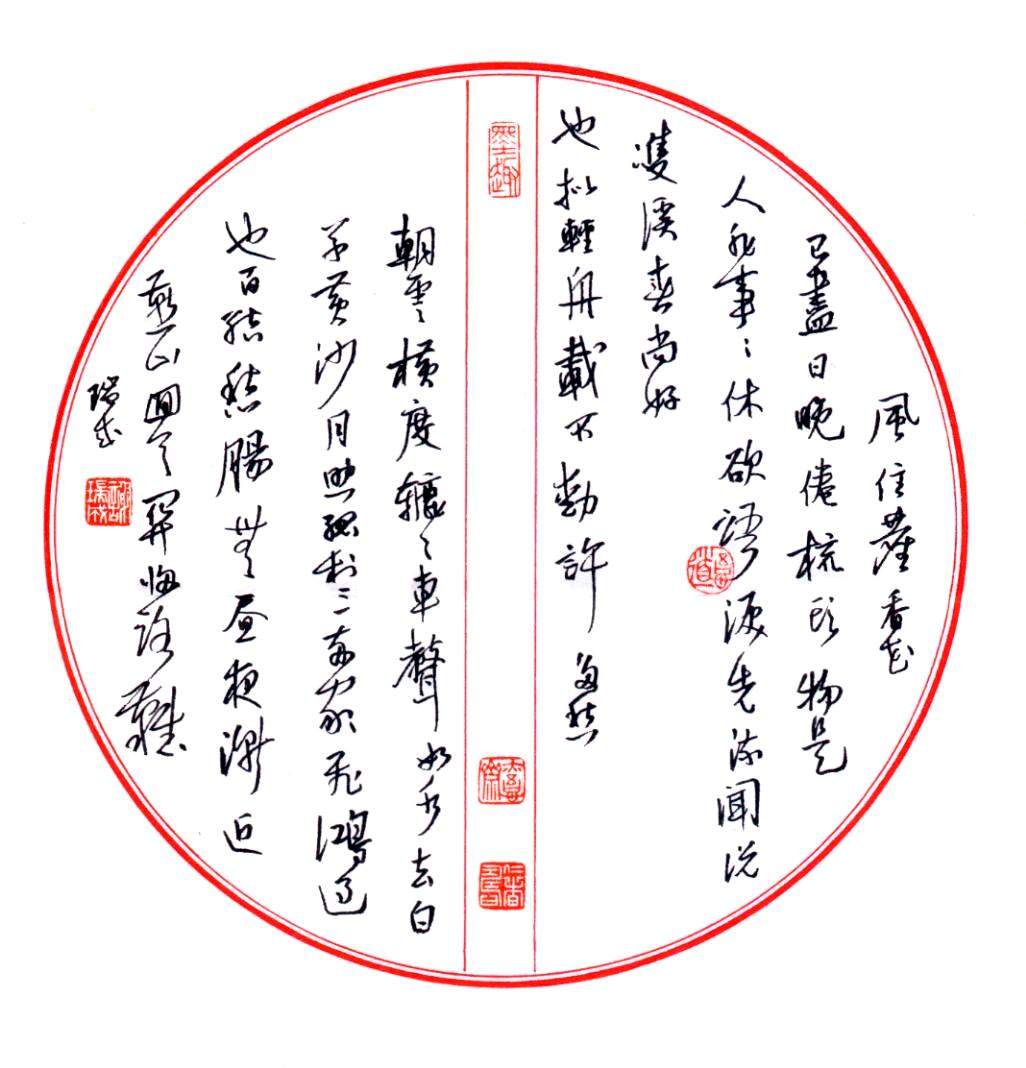 風住塵香花
已盡日晚倦梳頭物是
人非事〻休欲語淚先流聞說
雙溪春尚好
也拟輕舟載不動許多愁
墨趣
朝雲橫度轆〻車聲如水去白
草黃沙月照孤村三兩家飛鴻過
也百結愁腸無晝夜漸近
燕山回首関歸路難
瑞成